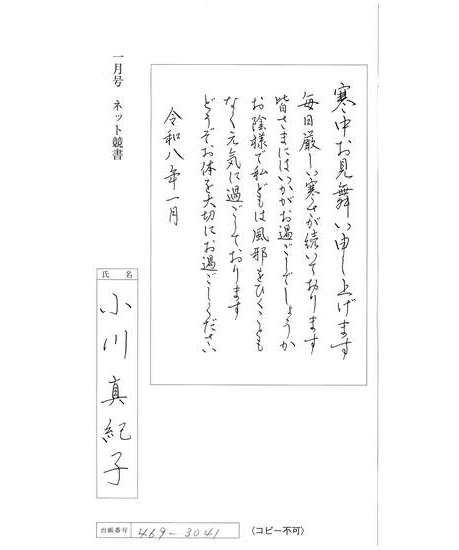 寒中お見舞い申し上げます
毎日厳しい寒さが続いております
皆さまにはいかがお過ごしでしょうか
お陰様で私どもは風邪をひくことも
なく元気に過ごしております
どうぞお体を大切にお過ごしください
令和八年一月
一月号 ネット競書
氏名
小川真紀子
台帳番号 469-3041
〈コピー不可〉